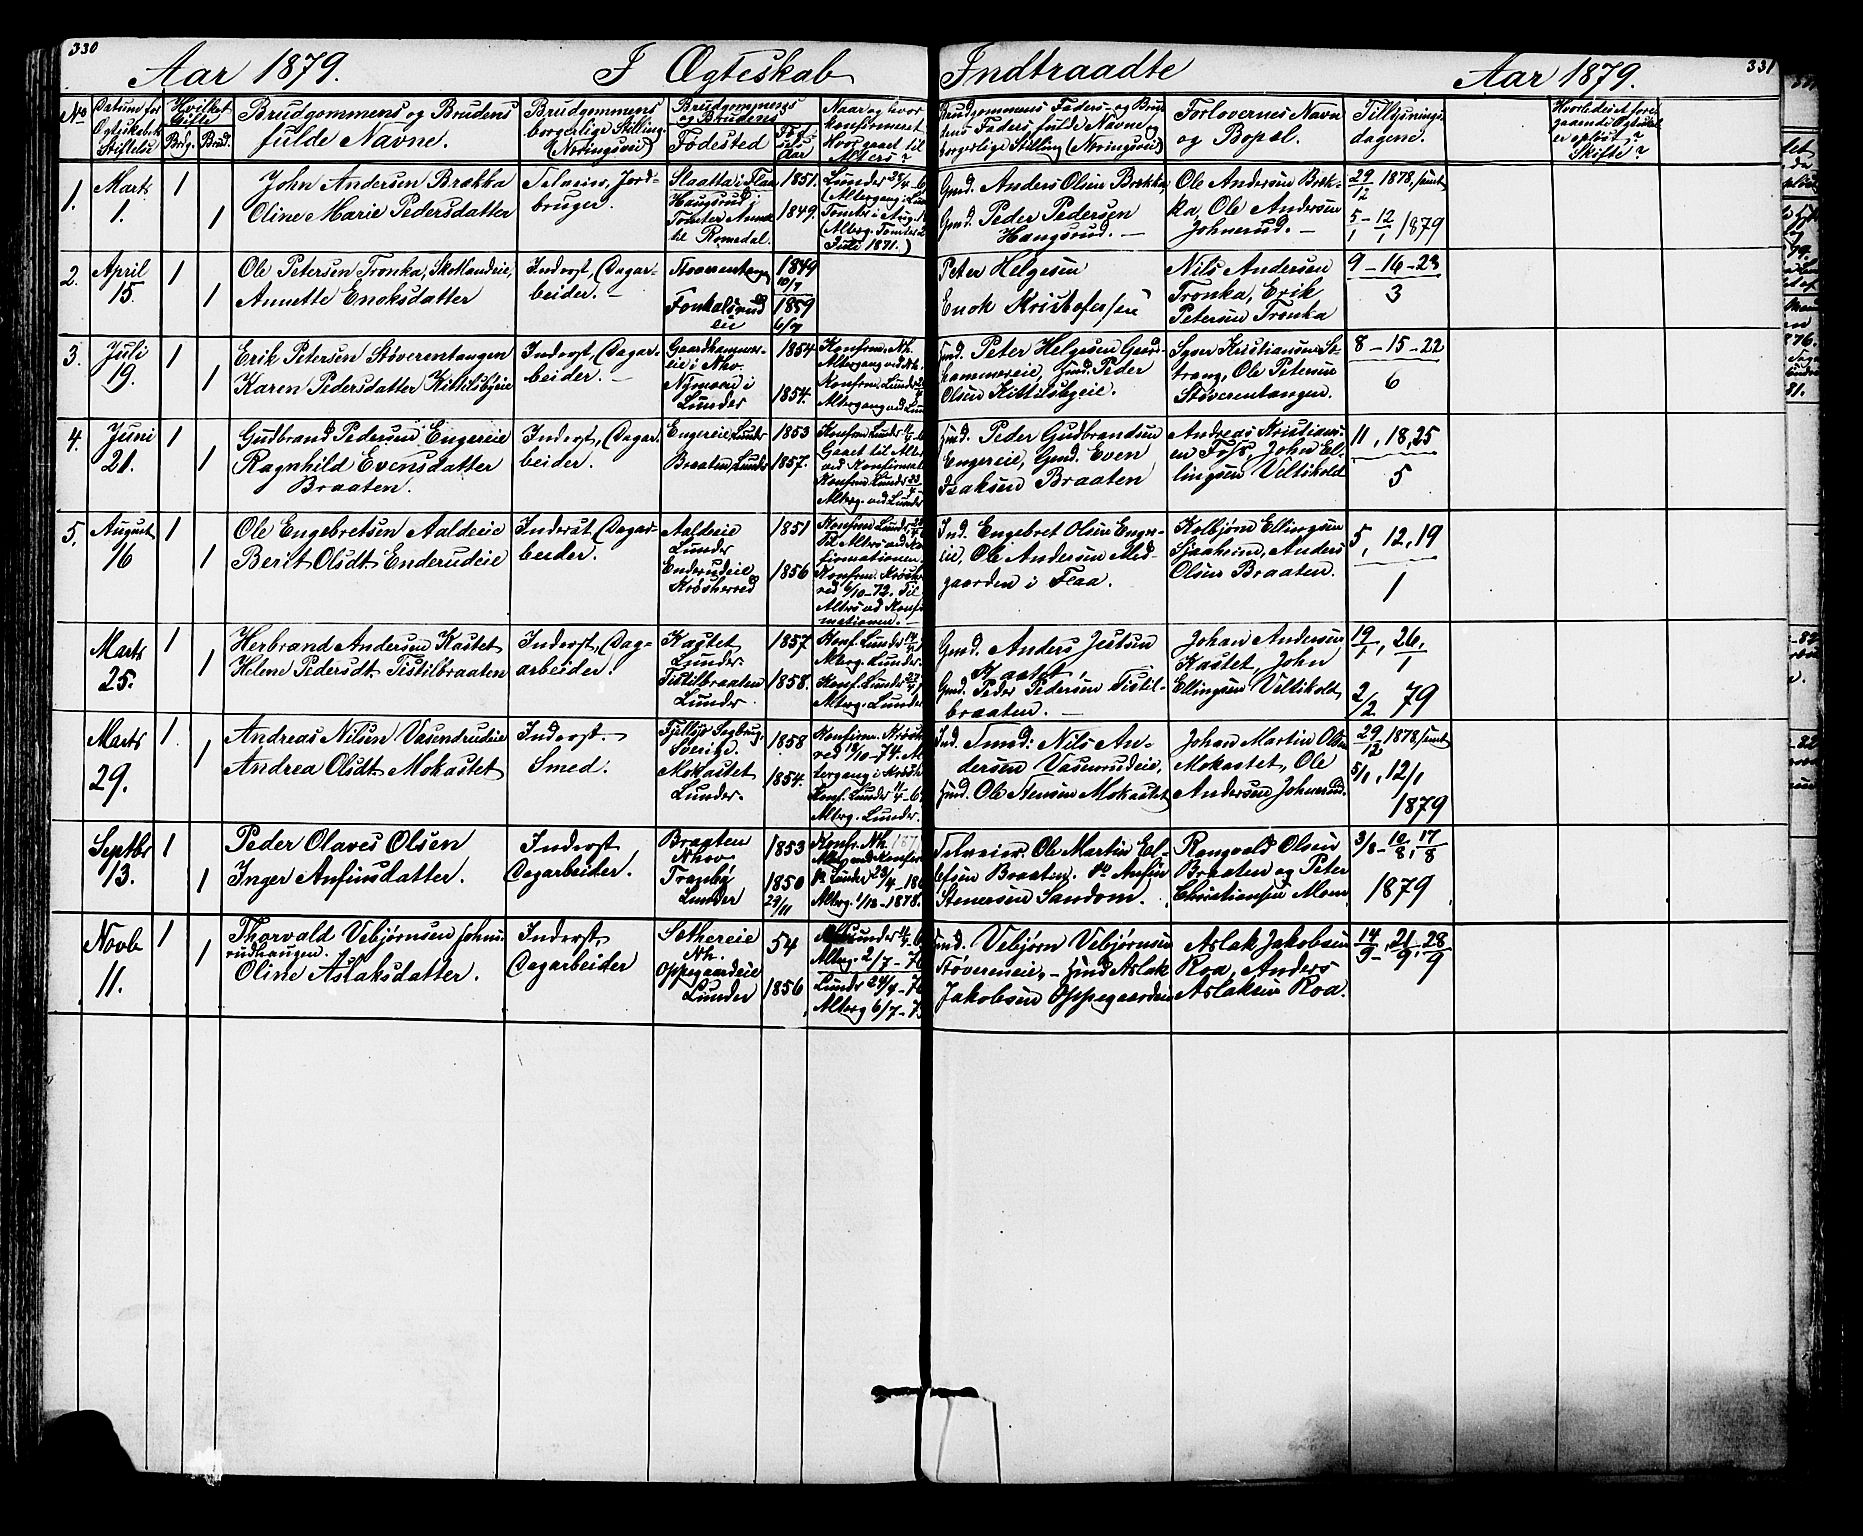 330
Aar 1879.
I Ægteskab
Indtraadte
Aar 1879.
331
No
Datum for
Ægteskabets
Stiftelse
Hvilket
Gifte
Brg. Brud.
Brudgommens og Brudens
fulde Navne.
Brudgommens
borgerlige Stilling
(Næringsvei)
Brudgommens
og Brudens
Fødested
Fød-
sels
Aar
Naar og hvor
konfirmeret
Hvor gaaet til
Alters?
Brudgommens Faders og Bru
dens Faders fulde Navne og
borgerlige Stilling (Næringsvei)
Forlovernes Navn
og Bopæl.
Tillysnings
dagene.
Hvorledes et fore
gaaende Ægteskab
er opløst?
Skifte?
1.
Marts
1.
1
1
John Andersen Brakka
Oline Marie Pedersdatter
Selveier, Jord-
bruger.
Slaatta i Flaa
Haugsrud i
til Romedal.
1851.
1849.
Juli 1871.)
Gmd. Anders Olsen Brakka
Gmd. Peder Pedersen
Haugsrud.
Ole Andersen Brak-
ka, Ole Andersen
Johnsrud.
29/12 1878, samt
5/1 - 12/1 1879
2.
April
15.
1
1
Ole Petersen Tronka, Skotlandeie,
Annette Enoksdatter
Inderst, Dagar-
beider.
eie
1849
10/7
1859
6/7
Peter Helgesen
Enok Kristofersen
Nils Andersen
Tronka, Erik
Petersen Tronka
9 - 16 - 23
3
3.
Juli
19.
1
1
Erik Petersen Støverentangen
Karen Pedersdatter Kittilsbyeie
Inderst, Dagar-
beider.
Gaardhammer-
eie i Nho.
Nymoen i
Lunder
1854
1854.
Konfirm. Nh.
Altergang ved Nh.
Konfirm. Lunder
Altergang ved Lun
Hmd. Peter Helgesen Gaard
hammereie, Hmd. Peder
Olsen Kittilsbyeie.
Syver Kristiansen Se-
trang, Ole Petersen
Støverentangen.
8 - 15 - 22
6
4.
Juni
21.
1
1
Gudbrand Pedersen Engereie
Ragnhild Evensdatter
Braaten.
Inderst, Dagar
beider.
Engereie, Lunder
Braaten, Lunder
1853
1857.
Konfirm. Lunder
Gaaet til Alters
ved Konfirmat
Konfirm. Lunder
Alterg. ved Lunder
Hmd. Peder Gudbrandsen
Engereie, Gmd. Even
Isaksen Braaten
Andreas Kristians-
en Foss, John El-
lingsen Veltikold
11, 18, 25
5
5.
August
16
1
1
Ole Engebretsen Aaldeie
Berit Olsdt. Enderudeie
Inderst, Dagar-
beider.
Aaldeie
Lunder
Enderudeie
Krødsherred
1851
1856
Konfirm. Lunder
Til Alters ved Kon
firmationen
Konfirm. Krødsh
red 6/10-72. Til
Alters ved Konfir
mationen.
Ind. Engebret Olsen Enger-
eie, Ole Andersen Med-
gaarden i Flaa.
Kolbjørn Ellingsen
Sjaaheim, Anders
Olsen Braaten.
5, 12, 19
1
Marts
25.
1
1
Herbrand Andersen Kastet
Helene Pedersdt. Tistilbraaten
Inderst, Dag-
arbeider.
Kastet
Lunder.
Tistilbraaten
Lunder.
1857
1858.
Konf. Lunder
Alterg. Lunder.
Konf. Lunder
Alterg. Lunder
Gmd. Anders Jestsen
Kastet.
Gmd. Peder Pedersen Tistil-
braaten.
Johan Andersen
Kastet, John
Ellingsen Veltikold,
19/1, 26/1
2/2 79
Marts
29.
1.
1
Andreas Nilsen Vasendrudeie
Andrea Olsdt. Mokastet
Inderst.
Smed.
Sverige.
Mokastet
Lunder.
1858
1854.
Konfirm. Krøds
red 18/10-74. Al
tergang i Krøds
Konf. Lunder
Alterg. Lunder.
Ind. Smed: Nils An-
dersen Vasenrudeie,
Hmd. Ole Stensen Mokastet
Johan Martin Olsen
Mokastet, Ole
Andersen Johnsrud.
29/12 1878, samt
5/1, 12/1
1879
Septbr
13.
1
1
Peder Olaves Olsen
Inger Anfinsdatter.
Inderst
Dagarbeider.
Braaten
Nhov
Tranby
Lunder
1853
1850
29/11
Konfr. Nh. 187
Alterg ved Konfirm
Alterg. 1/12-1878.
Selveier Ole Martin El-
lefsen Braaten. Anfin
Stenersen Sandom.
Rangvald Olsen
Braaten og Peter
Christiansen Moen
3/8 - 10/8, 17/8
1879
Novbr
11.
1
1
Thorvald Vebjørnsen Johns-
rudhaugen.
Oline Aslaksdatter.
Inderst,
Dagarbeider
Sethereie
Nh.
Oppegaardeie
Lunder
54
1856
Alterg. 2/7-7
Lunder 24/4-7
Alterg 6/7-7
Hmd. Vebjørn Vebjørnsen
Støvereneie, - Hmd Aslak
Jakobsen Oppegaardeie
Aslak Jakobsen
Roa, Anders
Aslaksen Roa.
14/9, 21/9, 28/9